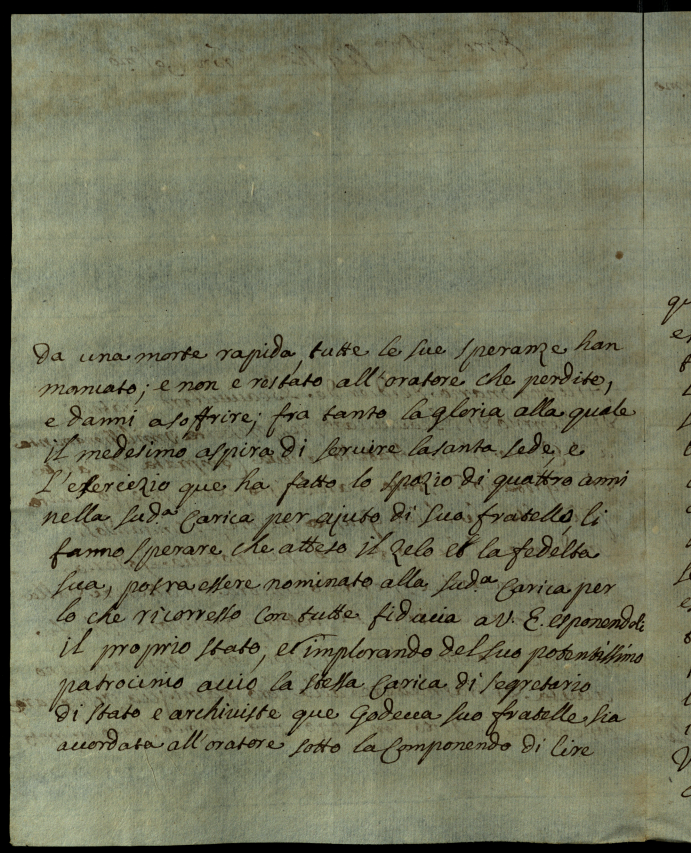 da una morte rapida, tutte le sue speranze han
mancato; e non e restato all'oratore che perdite,
e danni a soffrire; fra tanto la gloria alla quale
il medesimo aspira di servire la santa sede, e
l'esercizio que ha fatto lo spazio di quattro anni
nella sud.a Carica per ajuto di suo fratello, li
fanno sperare che atteso il zelo et la fedelta
sua, potra essere nominato alla sud.a Carica per
lo che ricorresso con tutte fiducia a V. E. esponendoli
il proprio stato, et implorando del suo potentissimo
patrocinio accio la stessa Carica di segretario
di stato e archiviste que Godeva suo fratelle, sia
accordata all'oratore sotto la Componendo di lire